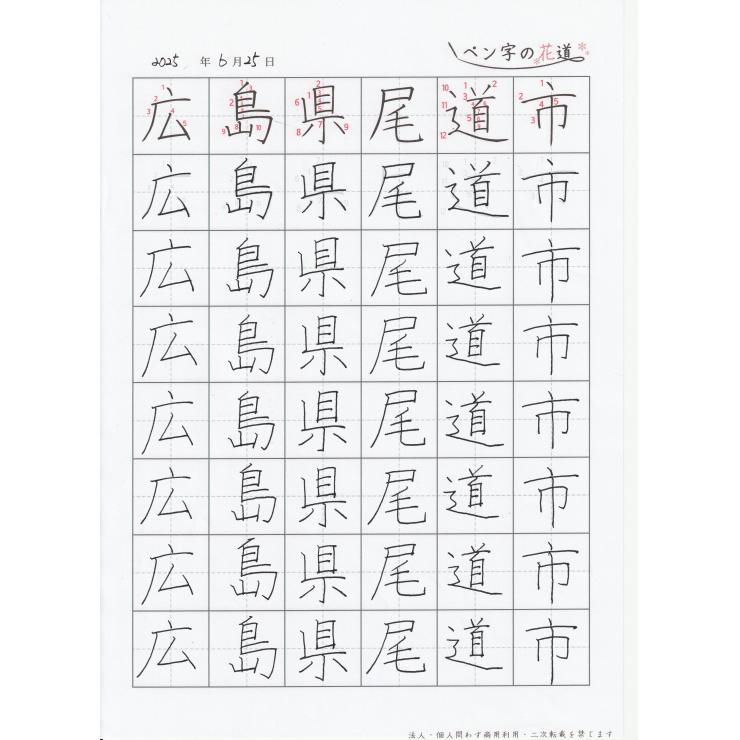 2025 年 6 月 25 日
ペン字の花道
広島県尾道市
広島県尾道市
広島県尾道市
広島県尾道市
広島県尾道市
広島県尾道市
広島県尾道市
広島県尾道市
法人・個人問わず商用利用・二次転載を禁じます